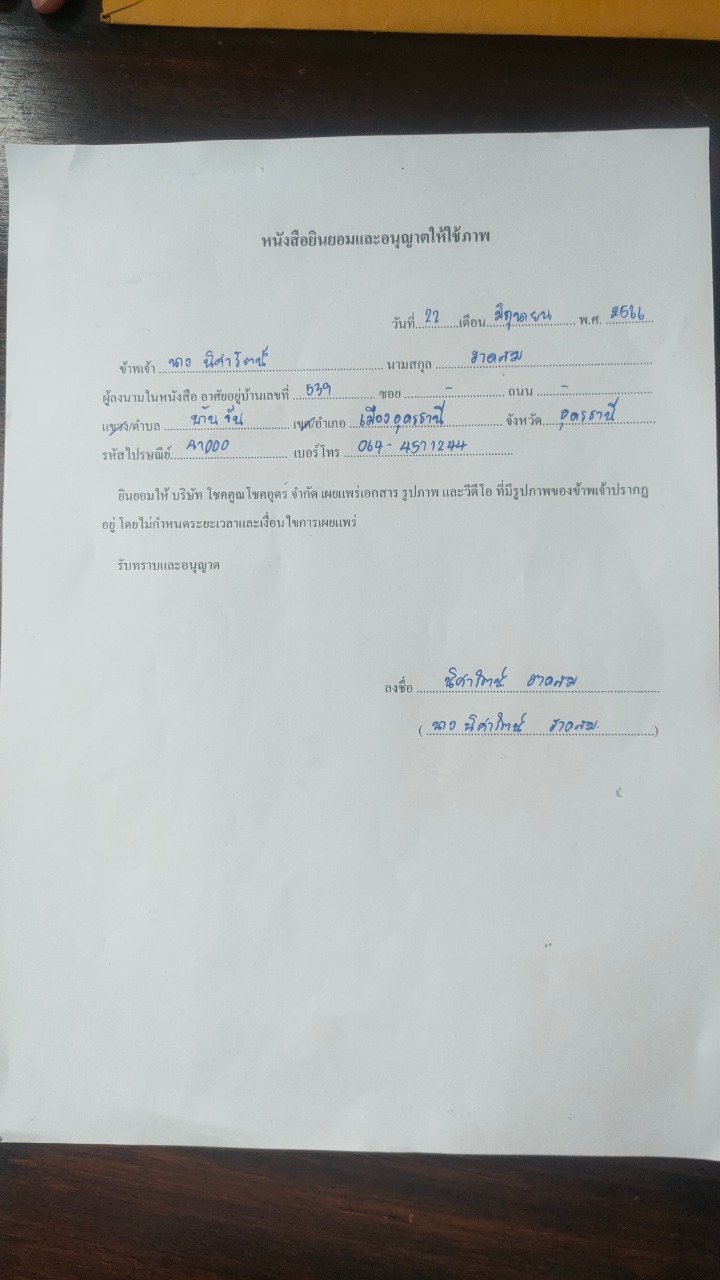 หนังสือยินยอมและอนุญาตให้ใช้ภาพ
วันที่ 22 เดือน มิถุนายน พ.ศ. 2566
ข้าพเจ้า นาง นิศารัตน์ นามสกุล
ผู้ลงนามในหนังสือ อาศัยอยู่บ้านเลขที่ 539 ซอย - ถนน -
แขวง/ตำบล เขต/อำเภอ เมืองอุดรธานี จังหวัด อุดรธานี
รหัสไปรษณีย์ 41000 เบอร์โทร 064-4511244
ยินยอมให้ บริษัท โชคคูณโชคอุดร จำกัด เผยแพร่เอกสาร รูปภาพ และวีดีโอ ที่มีรูปภาพของข้าพเจ้าปรากฏ
อยู่ โดยไม่กำหนดระยะเวลาและเงื่อนไขการเผยแพร่
รับทราบและอนุญาต
ลงชื่อ นิศารัตน์
( นาง นิศารัตน์ )